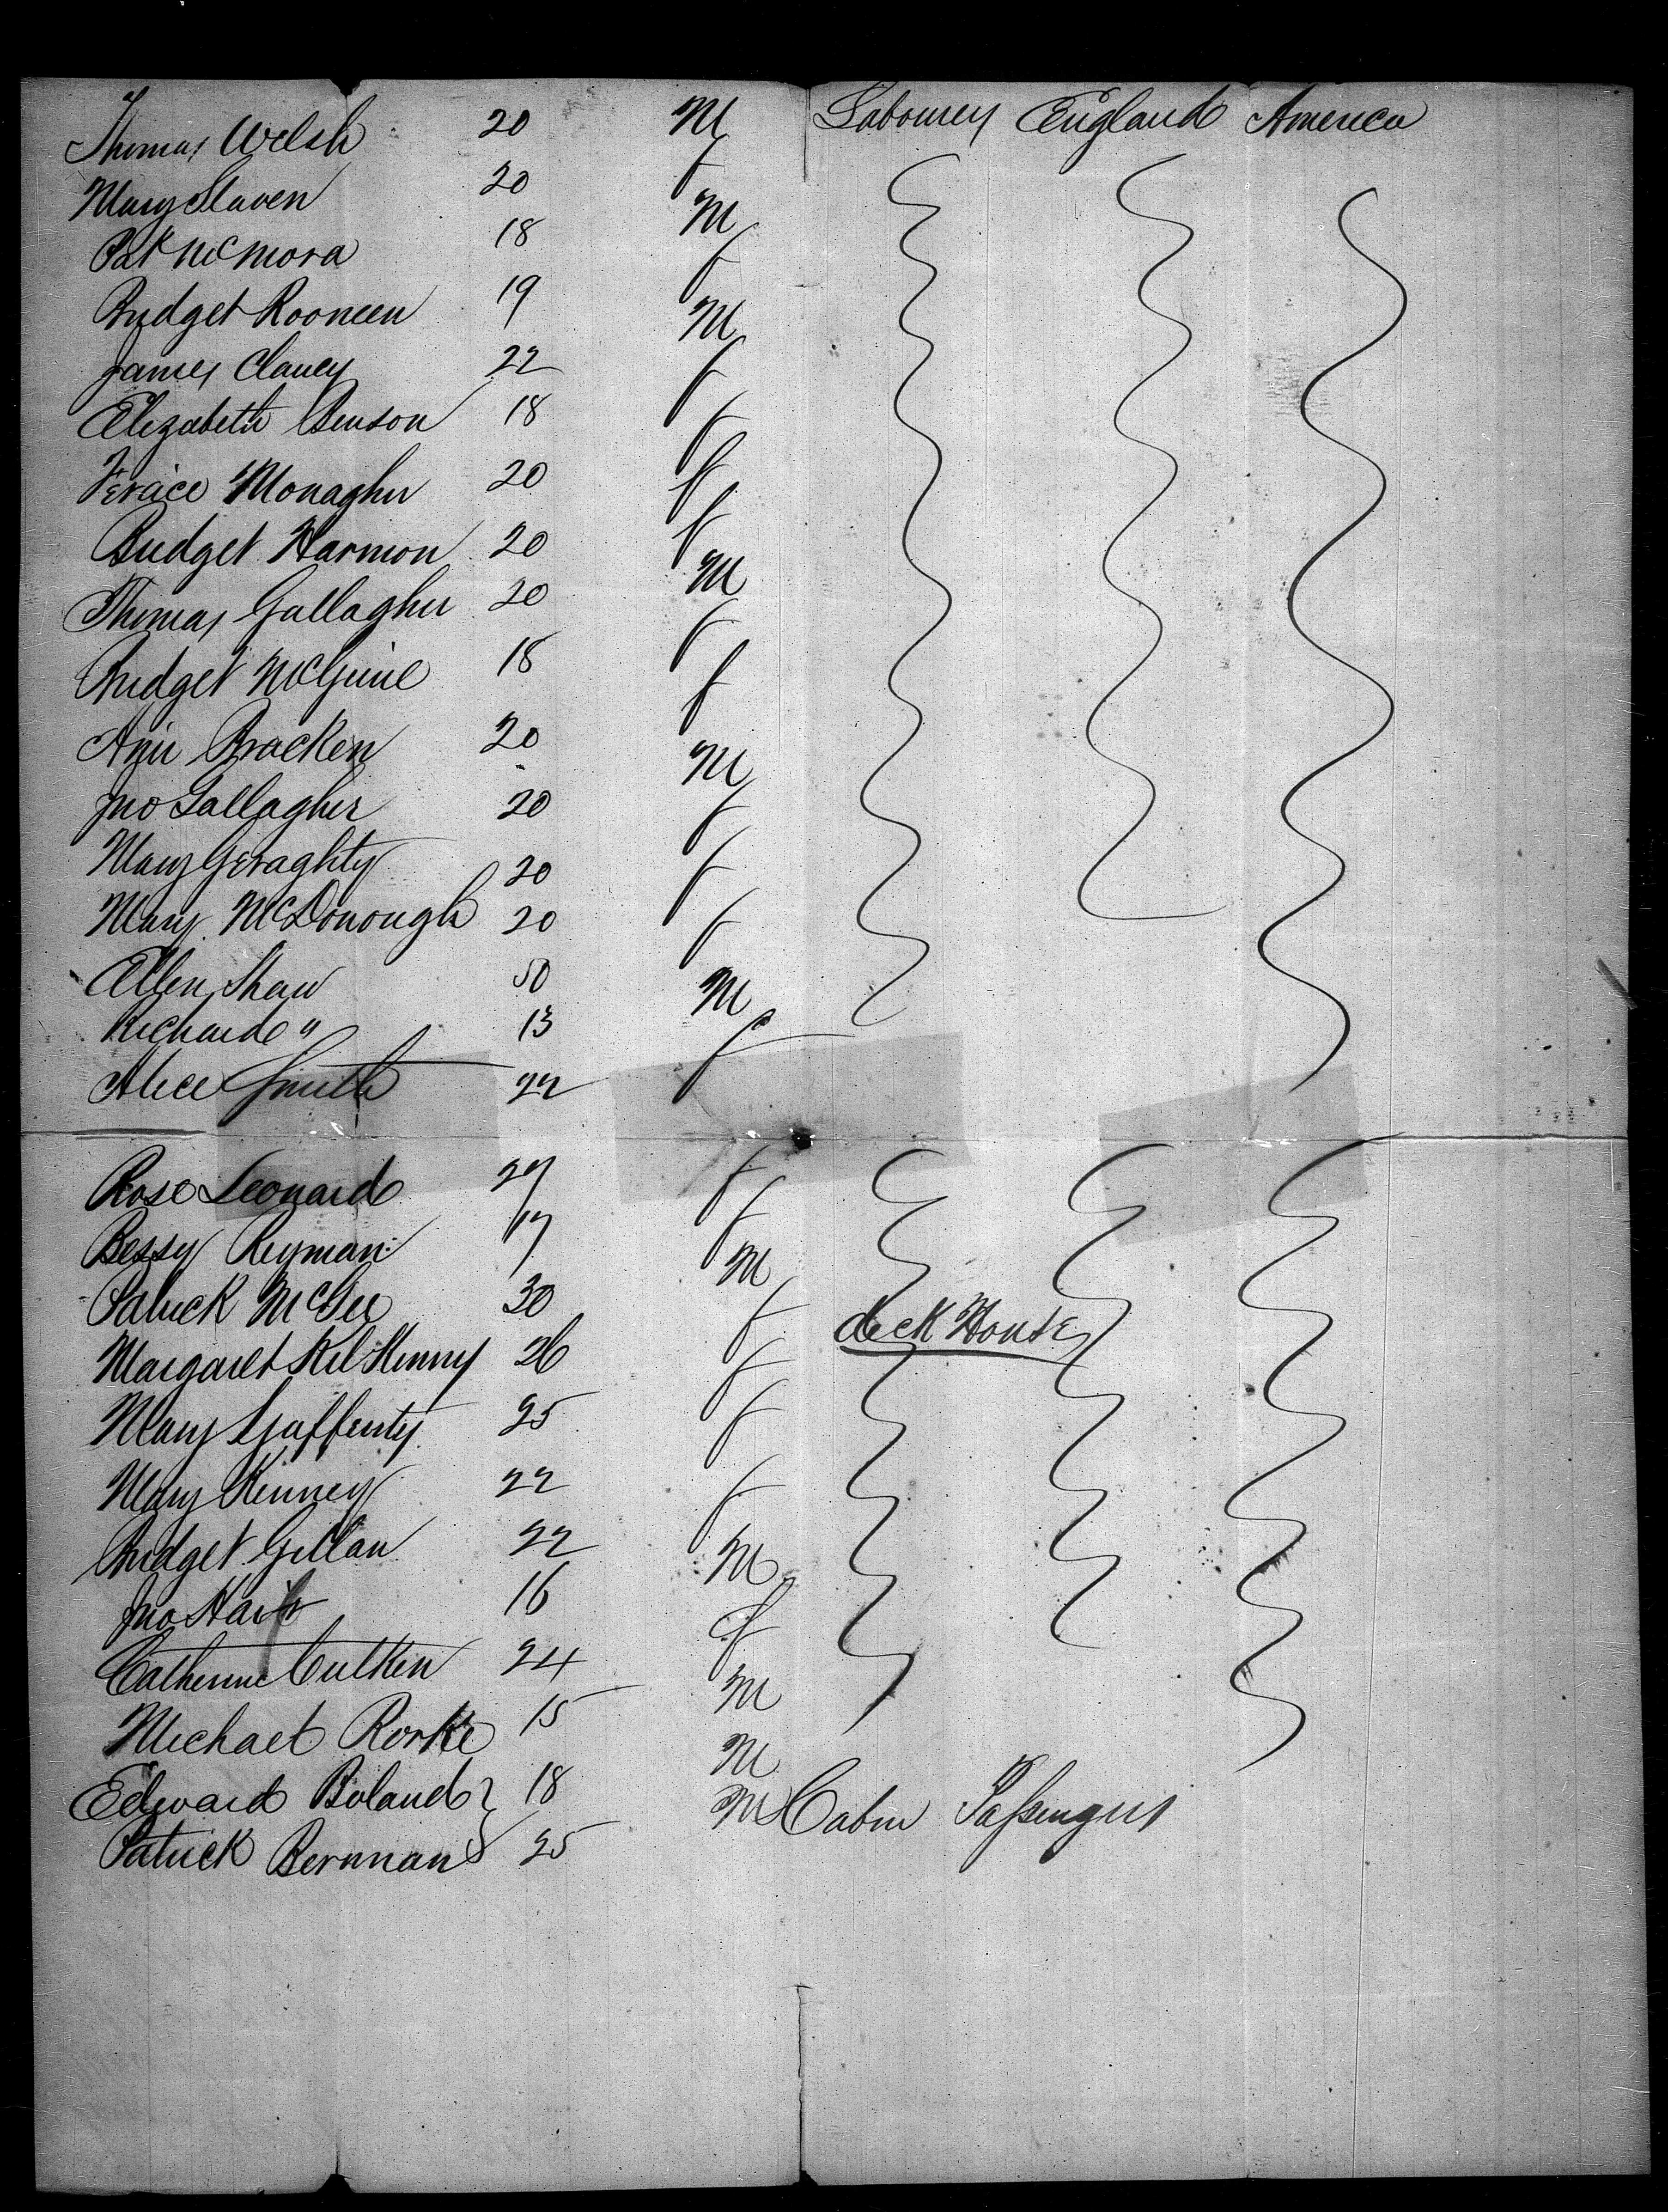 Thomas Welsh 20 M Labourer England America
Mary Slaven 20 f
Pat McMora 18 M
Bridget Rooneen 19 f
James Clancy 22 M
Elizabeth Benson 18 f
Monagher 20 f
Bridget Harmon 20 f
Thomas Gallagher 20 f M
Bridget McGuire 18 f
Ann Bracken 20 f
Jno Gallagher 20 M
Mary Geraghty 20 f
Mary McDonough 20 f
Ellen Shaw 50 f
Richard " 13 M
Alice Smith 22 f
Rose Leonard 27 f
Bessy 17 f
Patrick McGee 30 M
Margaret Kilkenny 26 f deck House
Mary Gaffenty 25 f
Mary Kenney 22 f
Bridget Gillan 22 f
Jno 16 M
Catherine Culken 24 f
Michael Rorke 15 M
Edward Boland 18 M
Patrick Bernnan 25 M Cabin Passengers